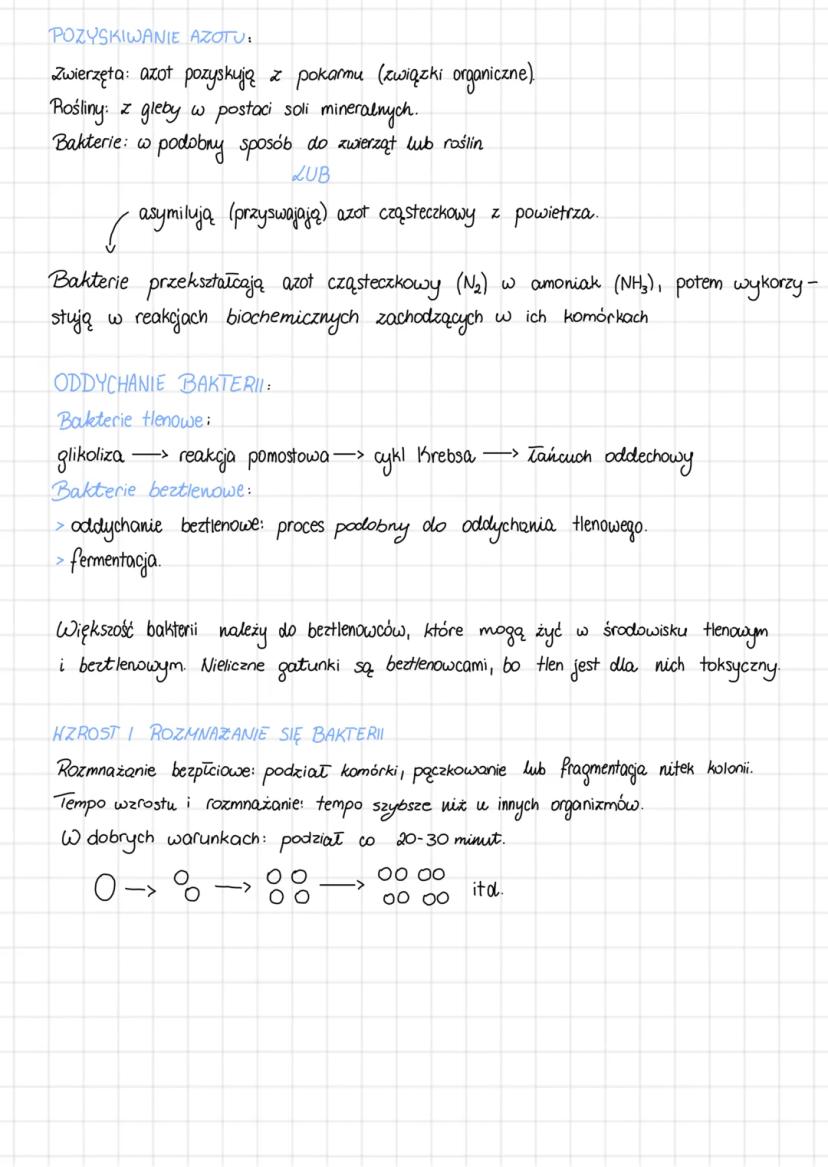 POZYSKIWANIE AZOTU:
Zwierzęta: azot pozyskują z pokarmu (związki organiczne).
Rośliny: z gleby w postaci soli mineralnych.
Bakterie: w podobny sposób do zwierząt lub roślin
LUB
asymilują (przyswajają) azot cząsteczkowy z powietrza.
Bakterie przekształcają azot cząsteczkowy (N₂) w amoniak (NH₃), potem wykorzy-
stują w reakcjach biochemicznych zachodzących w ich komórkach
ODDYCHANIE BAKTERII:
Bakterie tlenowe:
glikoliza → reakcja pomostowa → cykl Krebsa → łańcuch oddechowy
Bakterie beztlenowe:
> oddychanie beztlenowe: proces podobny do oddychania tlenowego.
> fermentacja.
Większość bakterii należy do beztlenowców, które mogą żyć w środowisku tlenowym
i beztlenowym. Nieliczne gatunki są beztlenowcami, bo tlen jest dla nich toksyczny.
WZROST I ROZMNAŻANIE SIĘ BAKTERII
Rozmnażanie bezpłciowe: podział komórki, pączkowanie lub fragmentacja nitek kolonii.
Tempo wzrostu i rozmnażanie: tempo szybsze niż u innych organizmów.
W dobrych warunkach: podział co 20-30 minut.
itd.